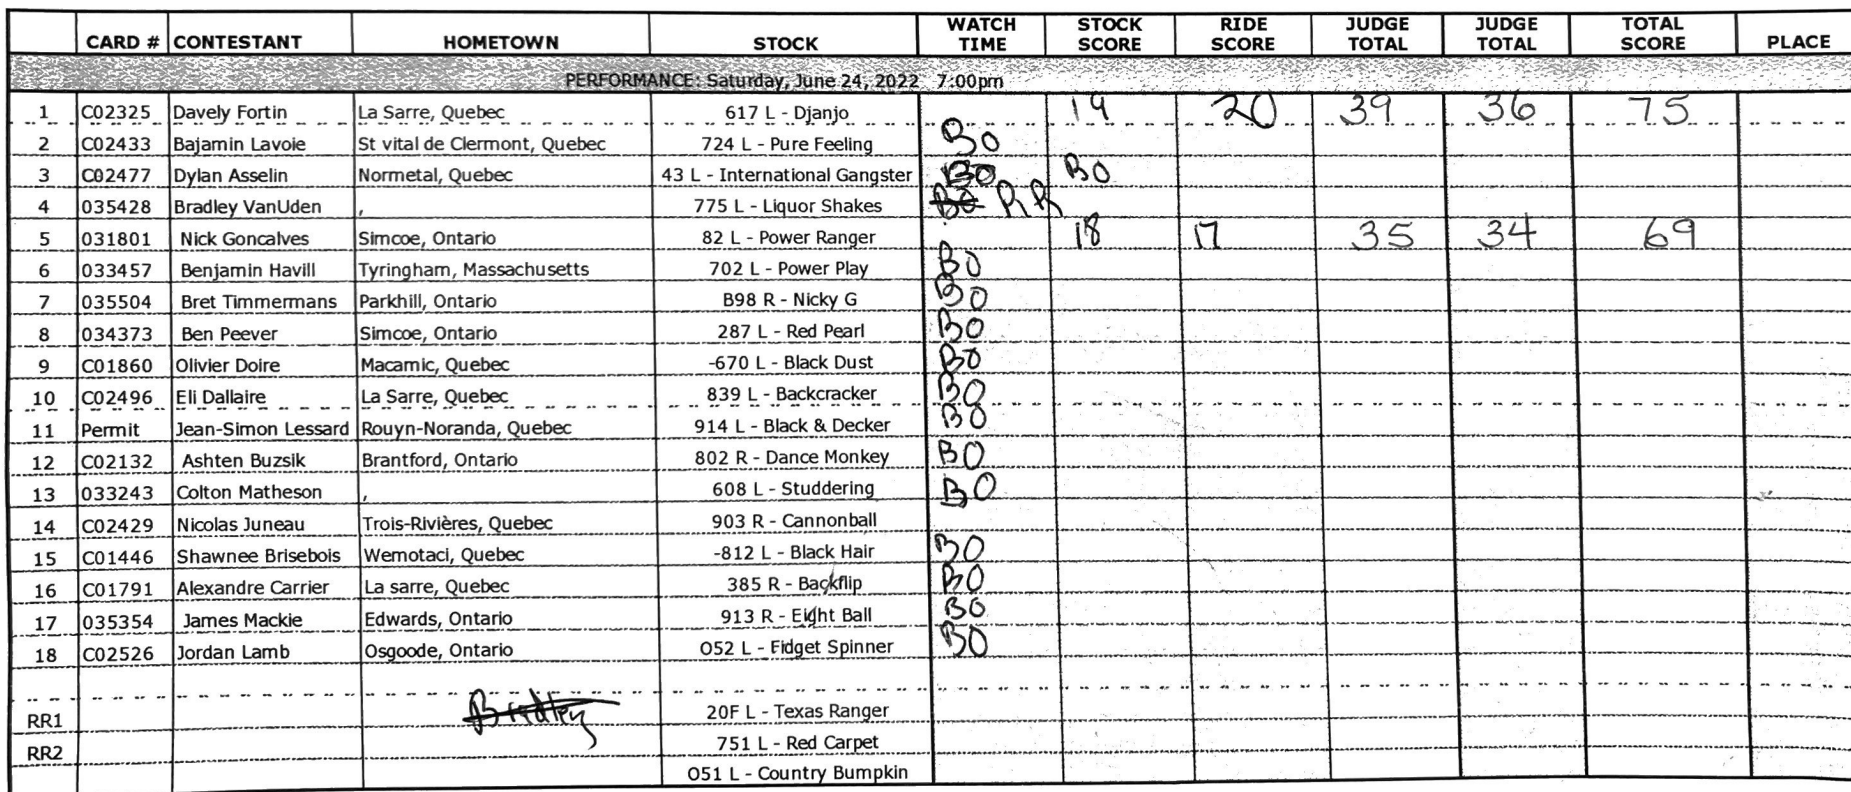 CARD # CONTESTANT HOMETOWN STOCK WATCH TIME STOCK SCORE RIDE SCORE JUDGE TOTAL JUDGE TOTAL TOTAL SCORE PLACE
PERFORMANCE: Saturday, June 24, 2022 7:00pm
1 C02325 Davely Fortin La Sarre, Quebec 617 L - Djanjo 19 20 39 36 75
2 C02433 Bajamin Lavoie St vital de Clermont, Quebec 724 L - Pure Feeling BO
3 C02477 Dylan Asselin Normetal, Quebec 43 L - International Gangster BO BO
4 035428 Bradley VanUden , 775 L - Liquor Shakes BO RR
5 031801 Nick Goncalves Simcoe, Ontario 82 L - Power Ranger 18 17 35 34 69
6 033457 Benjamin Havill Tyringham, Massachusetts 702 L - Power Play BO
7 035504 Bret Timmermans Parkhill, Ontario B98 R - Nicky G BO
8 034373 Ben Peever Simcoe, Ontario 287 L - Red Pearl BO
9 C01860 Olivier Doire Macamic, Quebec -670 L - Black Dust BO
10 C02496 Eli Dallaire La Sarre, Quebec 839 L - Backcracker BO
11 Permit Jean-Simon Lessard Rouyn-Noranda, Quebec 914 L - Black & Decker BO
12 C02132 Ashten Buzsik Brantford, Ontario 802 R - Dance Monkey BO
13 033243 Colton Matheson , 608 L - Studdering BO
14 C02429 Nicolas Juneau Trois-Rivières, Quebec 903 R - Cannonball
15 C01446 Shawnee Brisebois Wemotaci, Quebec -812 L - Black Hair BO
16 C01791 Alexandre Carrier La sarre, Quebec 385 R - Backflip BO
17 035354 James Mackie Edwards, Ontario 913 R - Eight Ball BO
18 C02526 Jordan Lamb Osgoode, Ontario O52 L - Fidget Spinner BO
RR1 Bradley 20F L - Texas Ranger
RR2 751 L - Red Carpet
O51 L - Country Bumpkin